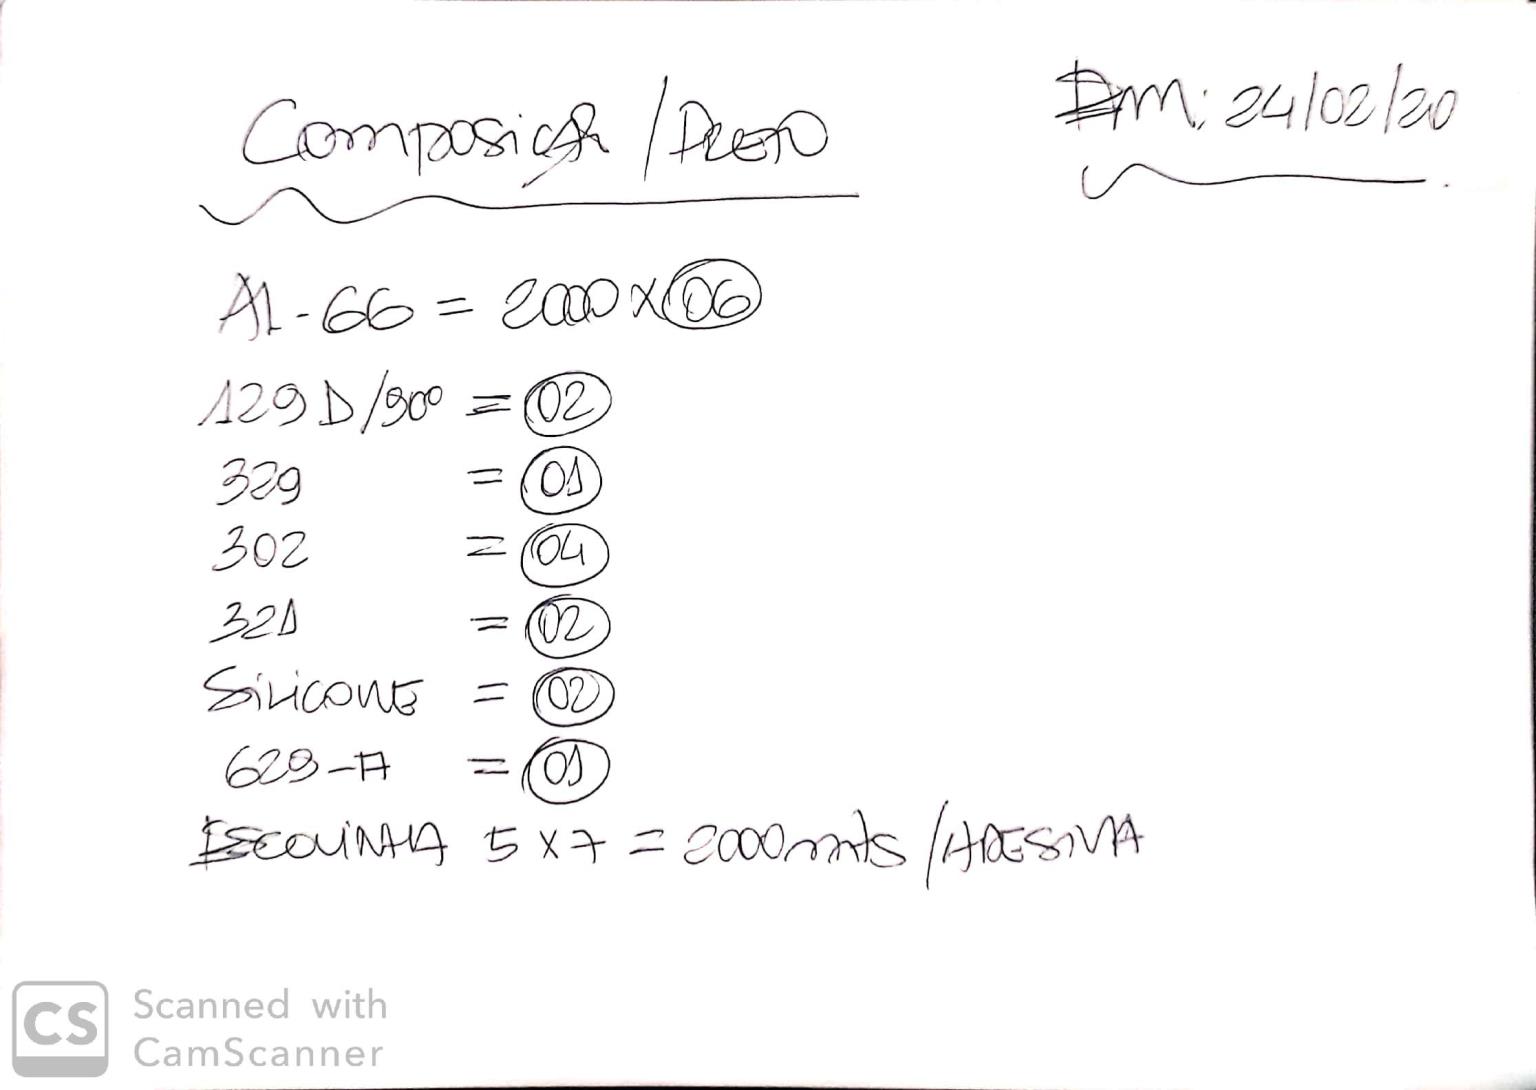 Composição / Preto
Em: 24/02/20
AL-66 = 2000 x 06
129 D/90° = 02
329 = 01
302 = 04
321 = 02
Silicone = 02
629-A = 01
Escovinha 5 x 7 = 2000 mts / Adesiva
CS
Scanned with
CamScanner